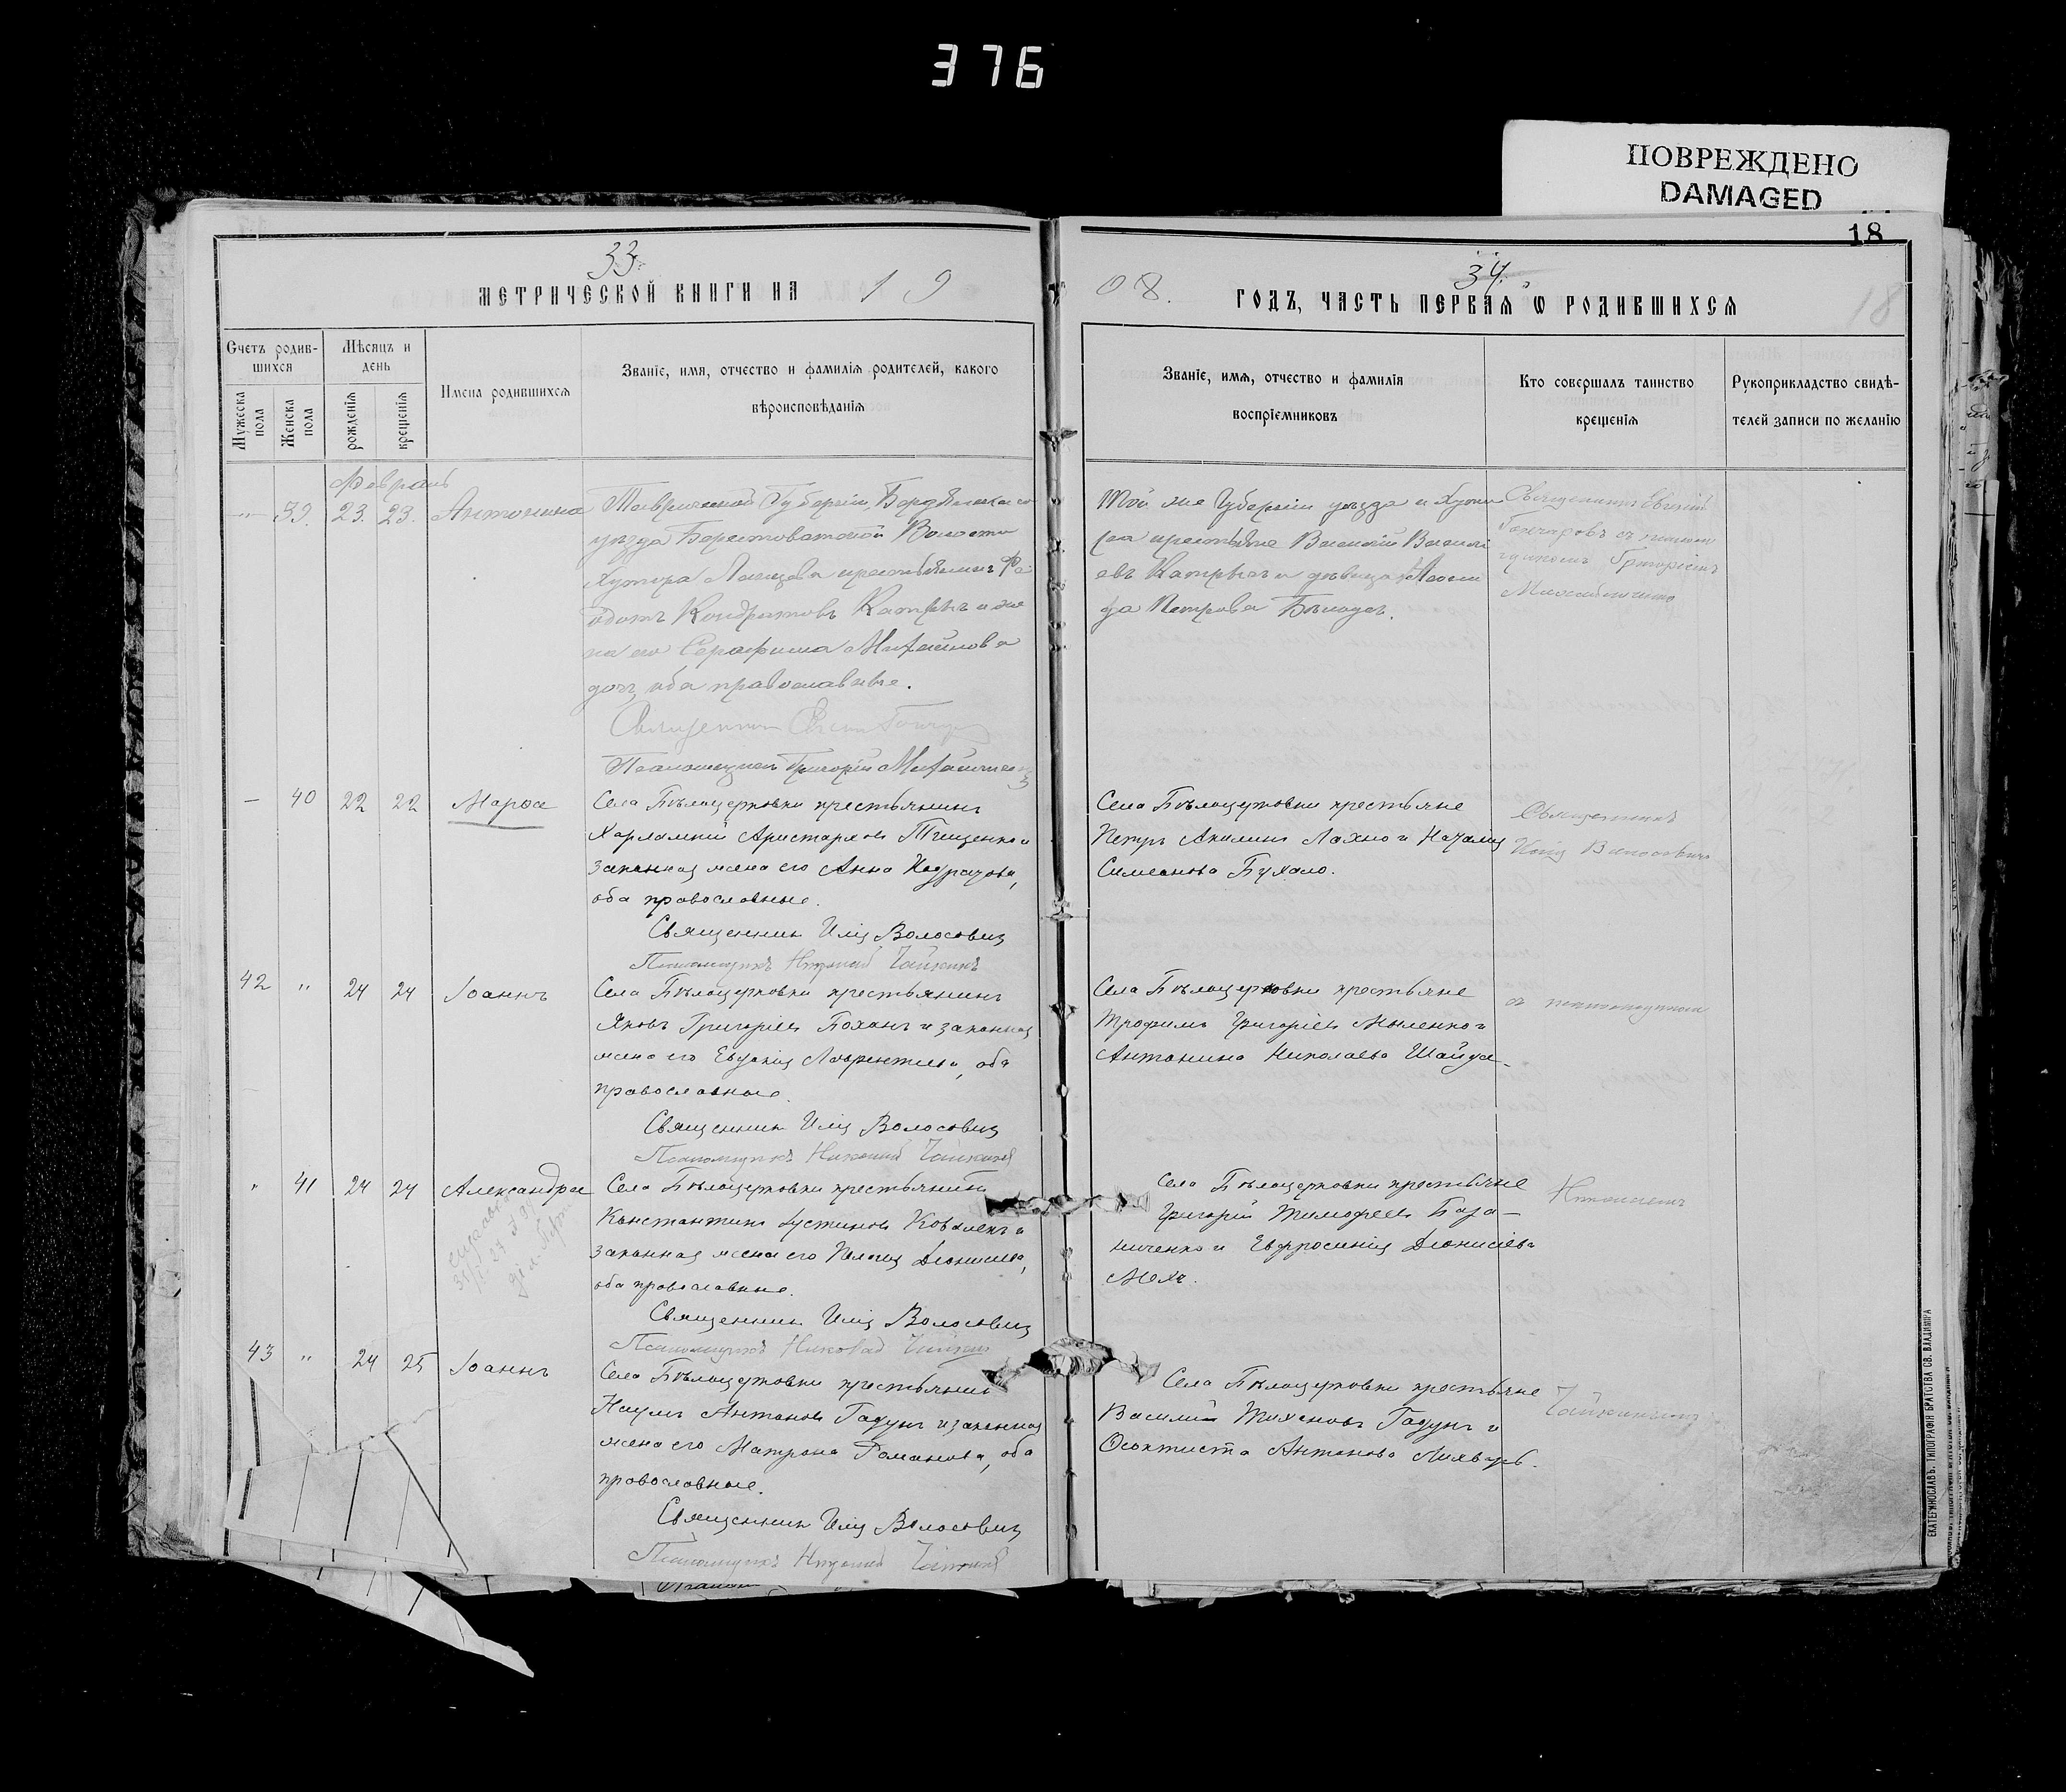 376
ПОВРЕЖДЕНО
DAMAGED
18
33.
МЕТРИЧЕСКОЙ КНИГИ НА 19
Счетъ родив-
шихся
Мѣсяцъ и
день
Мужеска
пола
Женска
пола
рожденія
крещенія
Имена родившихся
Званіе, имя, отчество и фамилія родителей, какого
вѣроисповѣданія
Февраль
39. 23. 23. Антонина
Таврической Губерніи Бердянскаго
уѣзда Берестоватской Волости
Хутора крестьянинъ Фе
одотъ Кондратовъ и же
на его Серафима Михайлова
дочь, оба православные.
Псаломщикъ Григорій
— 40 22 22 Марѳа
Села Бѣлоцерковки крестьянинъ
Харлампій Аристарховъ Тищенко и
законная жена его Анна
оба православные.
Священникъ Илія Волосовичъ
Псаломщикъ Николай Чайкинъ
42 " 24 24 Іоаннъ
Села Бѣлоцерковки крестьянинъ
Яковъ Григоріевъ Поханъ и законная
жена его Евдокія Лаврентіева, оба
православные.
Священникъ Илія Волосовичъ
Псаломщикъ Николай Чайкинъ
" 41 24 24 Александра
Села Бѣлоцерковки крестьянинъ
Константинъ Іустиновъ Коваленко и
законная жена его Пелагія Діонисіева,
оба православные.
Священникъ Илія Волосовичъ
Псаломщикъ Николай Чайкинъ
43 " 24 25 Іоаннъ
Села Бѣлоцерковки крестьянинъ
Наумъ Антоновъ Гадунъ и законная
жена его Матрона Романова, оба
православные.
Священникъ Илія Волосовичъ
Псаломщикъ Николай Чайкинъ
34.
08. ГОДЪ, ЧАСТЬ ПЕРВАЯ Ѡ РОДИВШИХСЯ
18
Званіе, имя, отчество и фамилія
воспріемниковъ
Кто совершалъ таинство
крещенія
Рукоприкладство свидѣ-
телей записи по желанію
Той же Губерніи уѣзда и Хуто
ра крестьяне Василій Василі
евъ и дѣвица
Петрова
Священникъ Евгеній
Гончаровъ съ псалом
щикомъ Григоріемъ
Села Бѣлоцерковки крестьяне
Петръ Акилинъ Лахно и Наталія
Симеонова Бухало.
Священникъ
Илія Волосовичъ
Села Бѣлоцерковки крестьяне
Трофимъ Григоріевъ Мыленко и
Антонина Николаева Шайда
съ псаломщикомъ
Села Бѣлоцерковки крестьяне
Григорій Тимофеевъ База-
ниченко и Евфросинія Діонисіева
Мохъ.
Николаемъ
Села Бѣлоцерковки крестьяне
Василій Тихоновъ Гадунъ и
Ѳеоктиста Антонова Лихварь.
Чайкинымъ
ЕКАТЕРИНОСЛАВЪ. ТИПОГРАФІЯ БРАТСТВА СВ. ВЛАДИМІРА